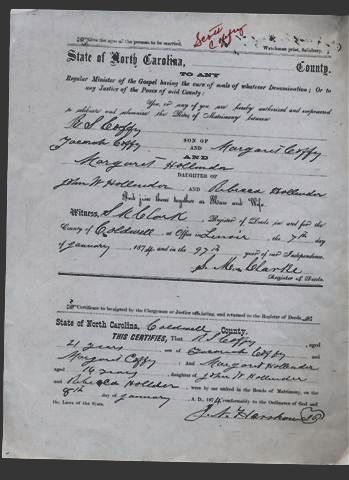 Give the ages of the persons to be married.
Watchman print, Salisbury.
State of North Carolina, County.
TO ANY
Regular Minister of the Gospel having the care of souls of whatever Denomination; Or to
any Justice of the Peace of said County:
You or any of you are hereby authorized and empowered
to celebrate and solemnize the Rites of Matrimony between
R S Coffy
SON OF
Jacob Coffy AND Margaret Coffy
AND
Margaret Hollender
DAUGHTER OF
John W Hollender AND Rebecca Hollender
And join them together as Man and Wife.
Witness, S M Clark, Register of Deeds in and for the
County of Caldwell at Office in Lenoir the 7th day
of January 1874 and in the 97th year of our Independence.
S M Clarke
Register of Deeds.
Certificate to be signed by the Clergyman or Justice officiating, and returned to the Register of Deeds.
State of North Carolina, Caldwell County.
THIS CERTIFIES, That R S Coffy, aged
21 years son of Coffy and
Margaret Coffy And Margaret Hollender
aged years, daughter of John W Hollender
and Rebecca Hollender were by me united in the Bonds of Matrimony, on the
8th day of January A. D., 1874 conformably to the Ordinance of God and
the Laws of the State.